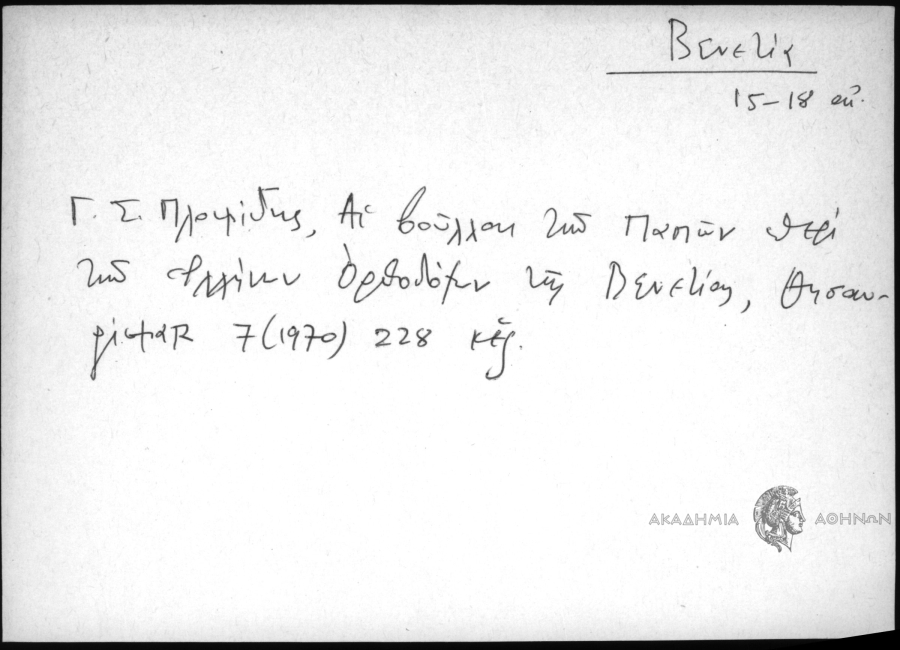 Βενετία
15-18 αἰ.
Γ. Σ. Πλουμίδης, Αἱ βοῦλλαι τῶν Παπῶν περὶ
τῶν Ἑλλήνων Ὀρθοδόξων τῆς Βενετίας, Θησαυ-
ρίσματα 7 (1970) 228 κἑξ.
ΑΚΑΔΗΜΙΑ ΑΘΗΝΩΝ